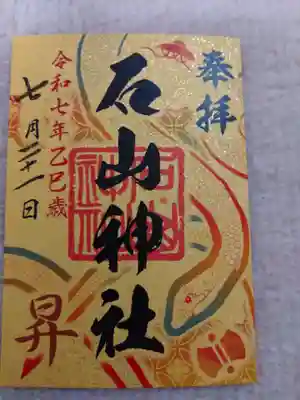 奉拝
石山神社
令和七年乙巳歳
七月二十一日
昇